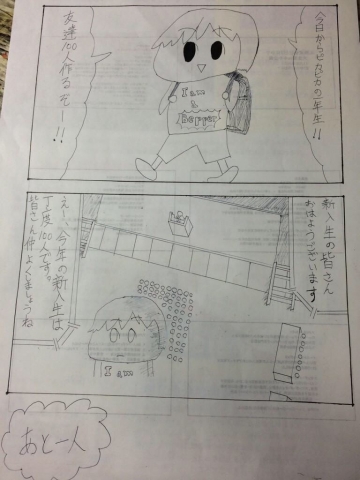 今日からピカピカの一年生!!
友達100人作るぞー!!
I am
a
Bepper
新入生の皆さん
おはようございます
え〜、今年の新入生は
丁度100人です。
皆さん仲よくしましょうね
I am
あと一人